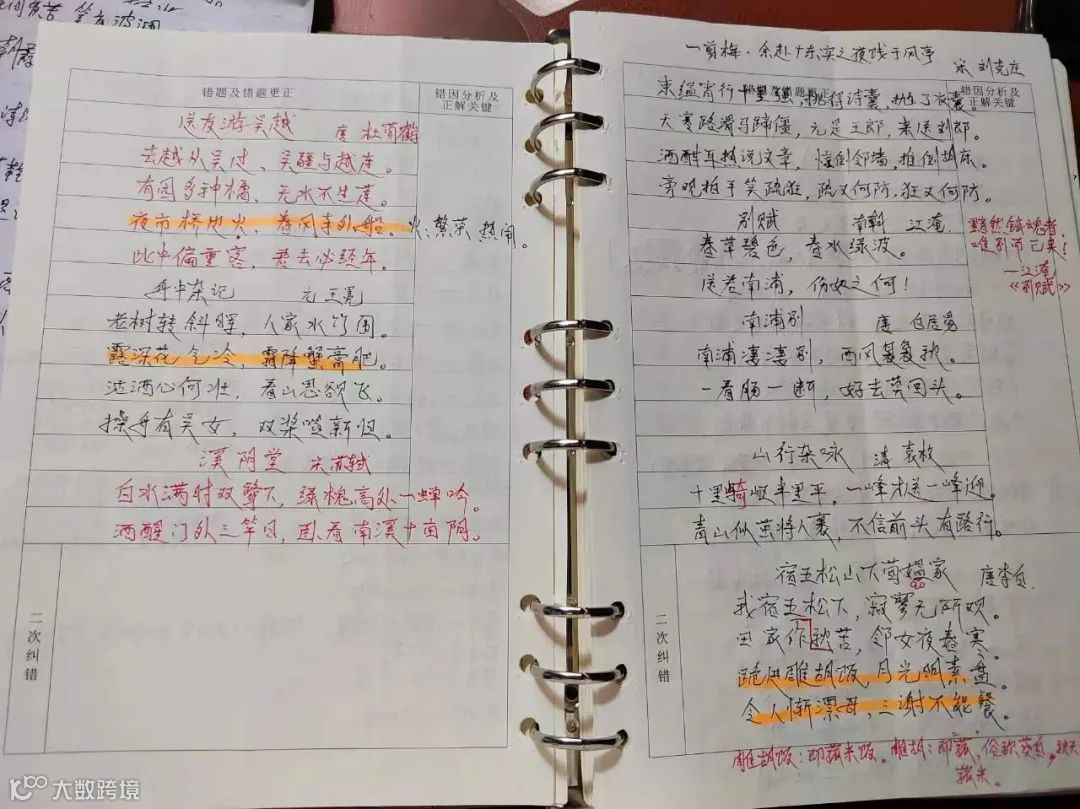 错题及错题更正
错因分析及
正解关键
送友游吴越 唐 杜荀鹤
去越从吴过、吴疆与越连。
有园多种橘、无水不生莲。
夜市桥边火、春风寺外船。
火：繁荣、热闹。
此中偏重客、君去必经年。
舟中杂记 元 王冕
老树转斜晖，人家水竹围。
露深花气冷，霜降蟹膏肥。
沽酒心何壮，看山思欲飞。
操舟有吴女，双桨唱新归。
溪阴堂 宋苏轼
白水满时双鹭下，绿槐高处一蝉吟。
酒醒门外三竿日，卧看南溪十亩阴。
二次纠错
一剪梅·余赴广东实之夜饯于风亭
宋 刘克庄
错因分析及
正解关键
束缊宵行十里强，挑得诗囊，抛了衣囊。
天寒路滑马蹄僵，元是王郎，来送刘郎。
酒酣耳热说文章，惊倒邻墙，推倒胡床。
旁观拍手笑疏狂，疏又何防，狂又何防。
别赋 南朝 江淹
春草碧色，春水绿波。
送君南浦，伤如之何！
黯然销魂者
唯别而已矣！
—江淹
《别赋》
南浦别 唐 白居易
南浦凄凄别，西风袅袅秋。
一看肠一断，好去莫回头。
山行杂咏 清 袁枚
十里崎岖半里平，一峰才送一峰迎。
青山似茧将人裹，不信前头有路行。
宿五松山下荀媪家 唐李白
我宿五松下，寂寥无所欢。
田家作秋苦，邻女夜舂寒。
跪进雕胡饭，月光明素盘。
令人惭漂母，三谢不能餐。
雕胡饭：即菰米饭。雕胡：即菰，俗称茭白，秋天
菰米。
二次纠错
大数跨境